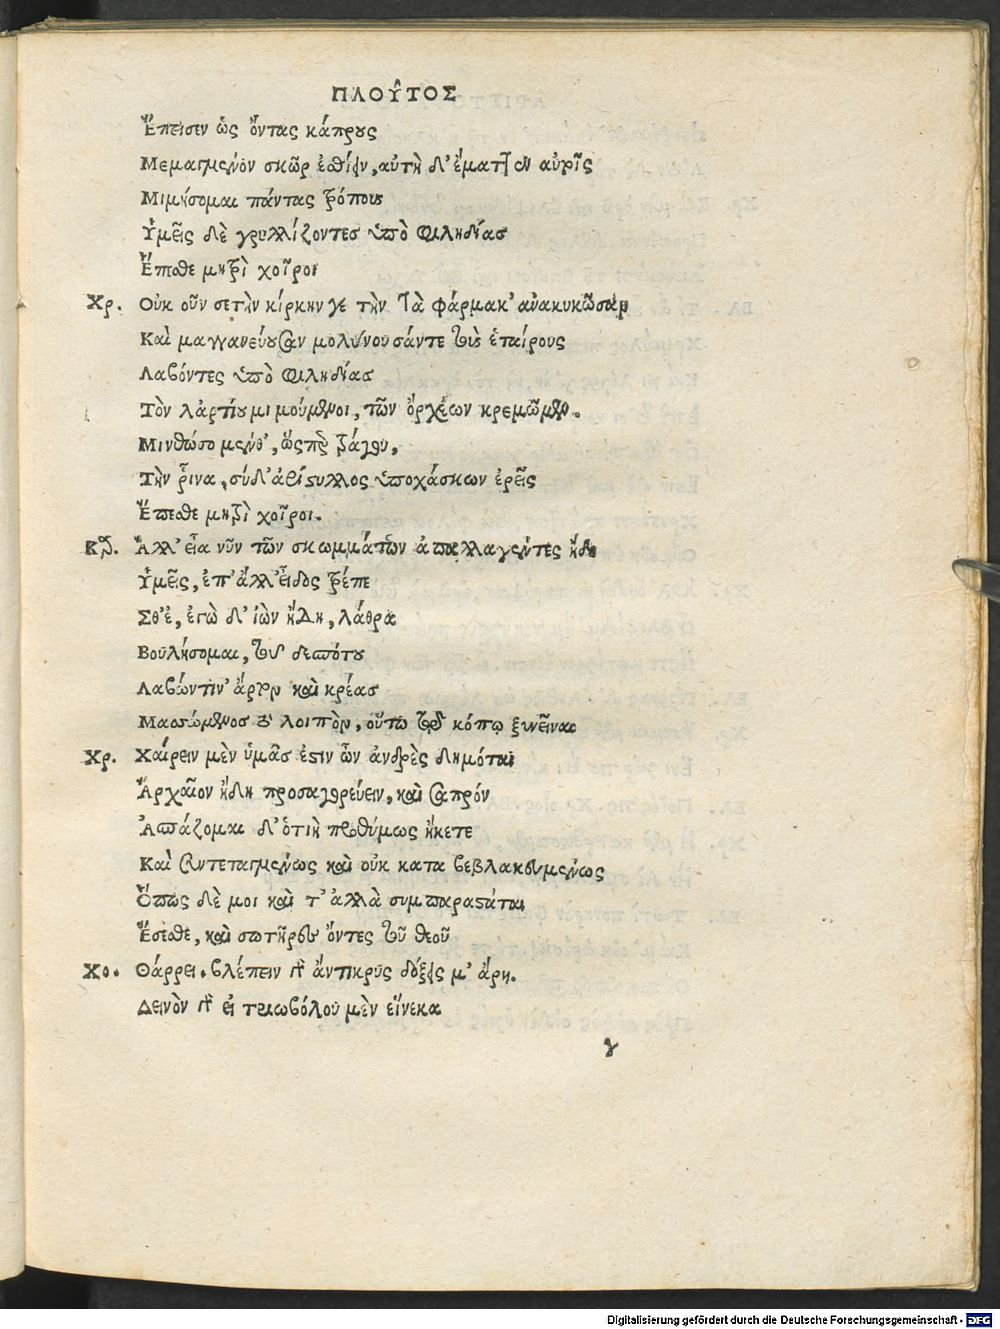 ΠΛΟΥ͂ΤΟΣ
Ἔπεισεν ὡς ὄντας κάπρους
Μεμαγμένον σκῶρ ἐσθίειν, αὐτὴ δ' ἔματτεν αὐτοῖς
Μιμήσομαι πάντας τρόπους
Ὑμεῖς δὲ γρυλλίζοντες ὑπὸ φιληδίας
Ἕπεσθε μητρὶ χοῖροι
Χρ. Οὐκ οῦν σε τὴν κίρκην γε τὴν τὰ φάρμακ' ἀνακυκῶσαν
Καὶ μαγγανεύουσαν μολύνουσάν τε τοὺς ἑταίρους
Λαβόντες ὑπὸ φιληδίας
Τὸν λαρτίου μιμούμενοι, τῶν ὄρχεων κρεμῶμεν.
Μινθώσομέν θ', ὥςπερ τράγου,
Τὴν ῥῖνα, σύ δ' ἀρίστυλλος ὑποχάσκων ἐρεῖς
Ἕπεσθε μητρὶ χοῖροι.
Κορ. Ἀλλ' εἶα νῦν τῶν σκωμμάτων ἀπαλλαγέντες ἤδη
Ὑμεῖς, ἐπ' ἀλλ' εἶδος τρέπε
Σθ' ἐ, ἐγὼ δ' ἰὼν ἤδη, λάθρα
Βουλήσομαι, τοῦ δεσπότου
Λαβών τιν' ἄρτον καὶ κρέας
Μασώμενος τὸ λοιπὸν, οὕτω τῷ κόπῳ ξυνεῖναι
Χρ. Χαίρειν μὲν ὑμᾶς ἐστιν ὦν ἀνδρὲς δημόται
Ἀρχαῖον ἤδη προσαγορεύειν, καὶ σαπρόν
Ἀσπάζομαι δ' ὁτιὴ προθύμως ἥκετε
Καὶ συντεταγμένως καὶ οὐκ κατα βεβλακευμένως
Ὅπως δὲ μοι καὶ τ' ἀλλὰ συμπαραστάται
Ἔσεσθε, καὶ σωτῆρες ὄντες τοῦ θεοῦ
Χο. Θάρρει. βλέπειν γὰρ ἄντικρυς δόξεις μ' ἄρη.
Δεινὸν γὰρ εἰ τριωβόλου μὲν εἵνεκα
γ
Digitalisierung gefördert durch die Deutsche Forschungsgemeinschaft - DFG